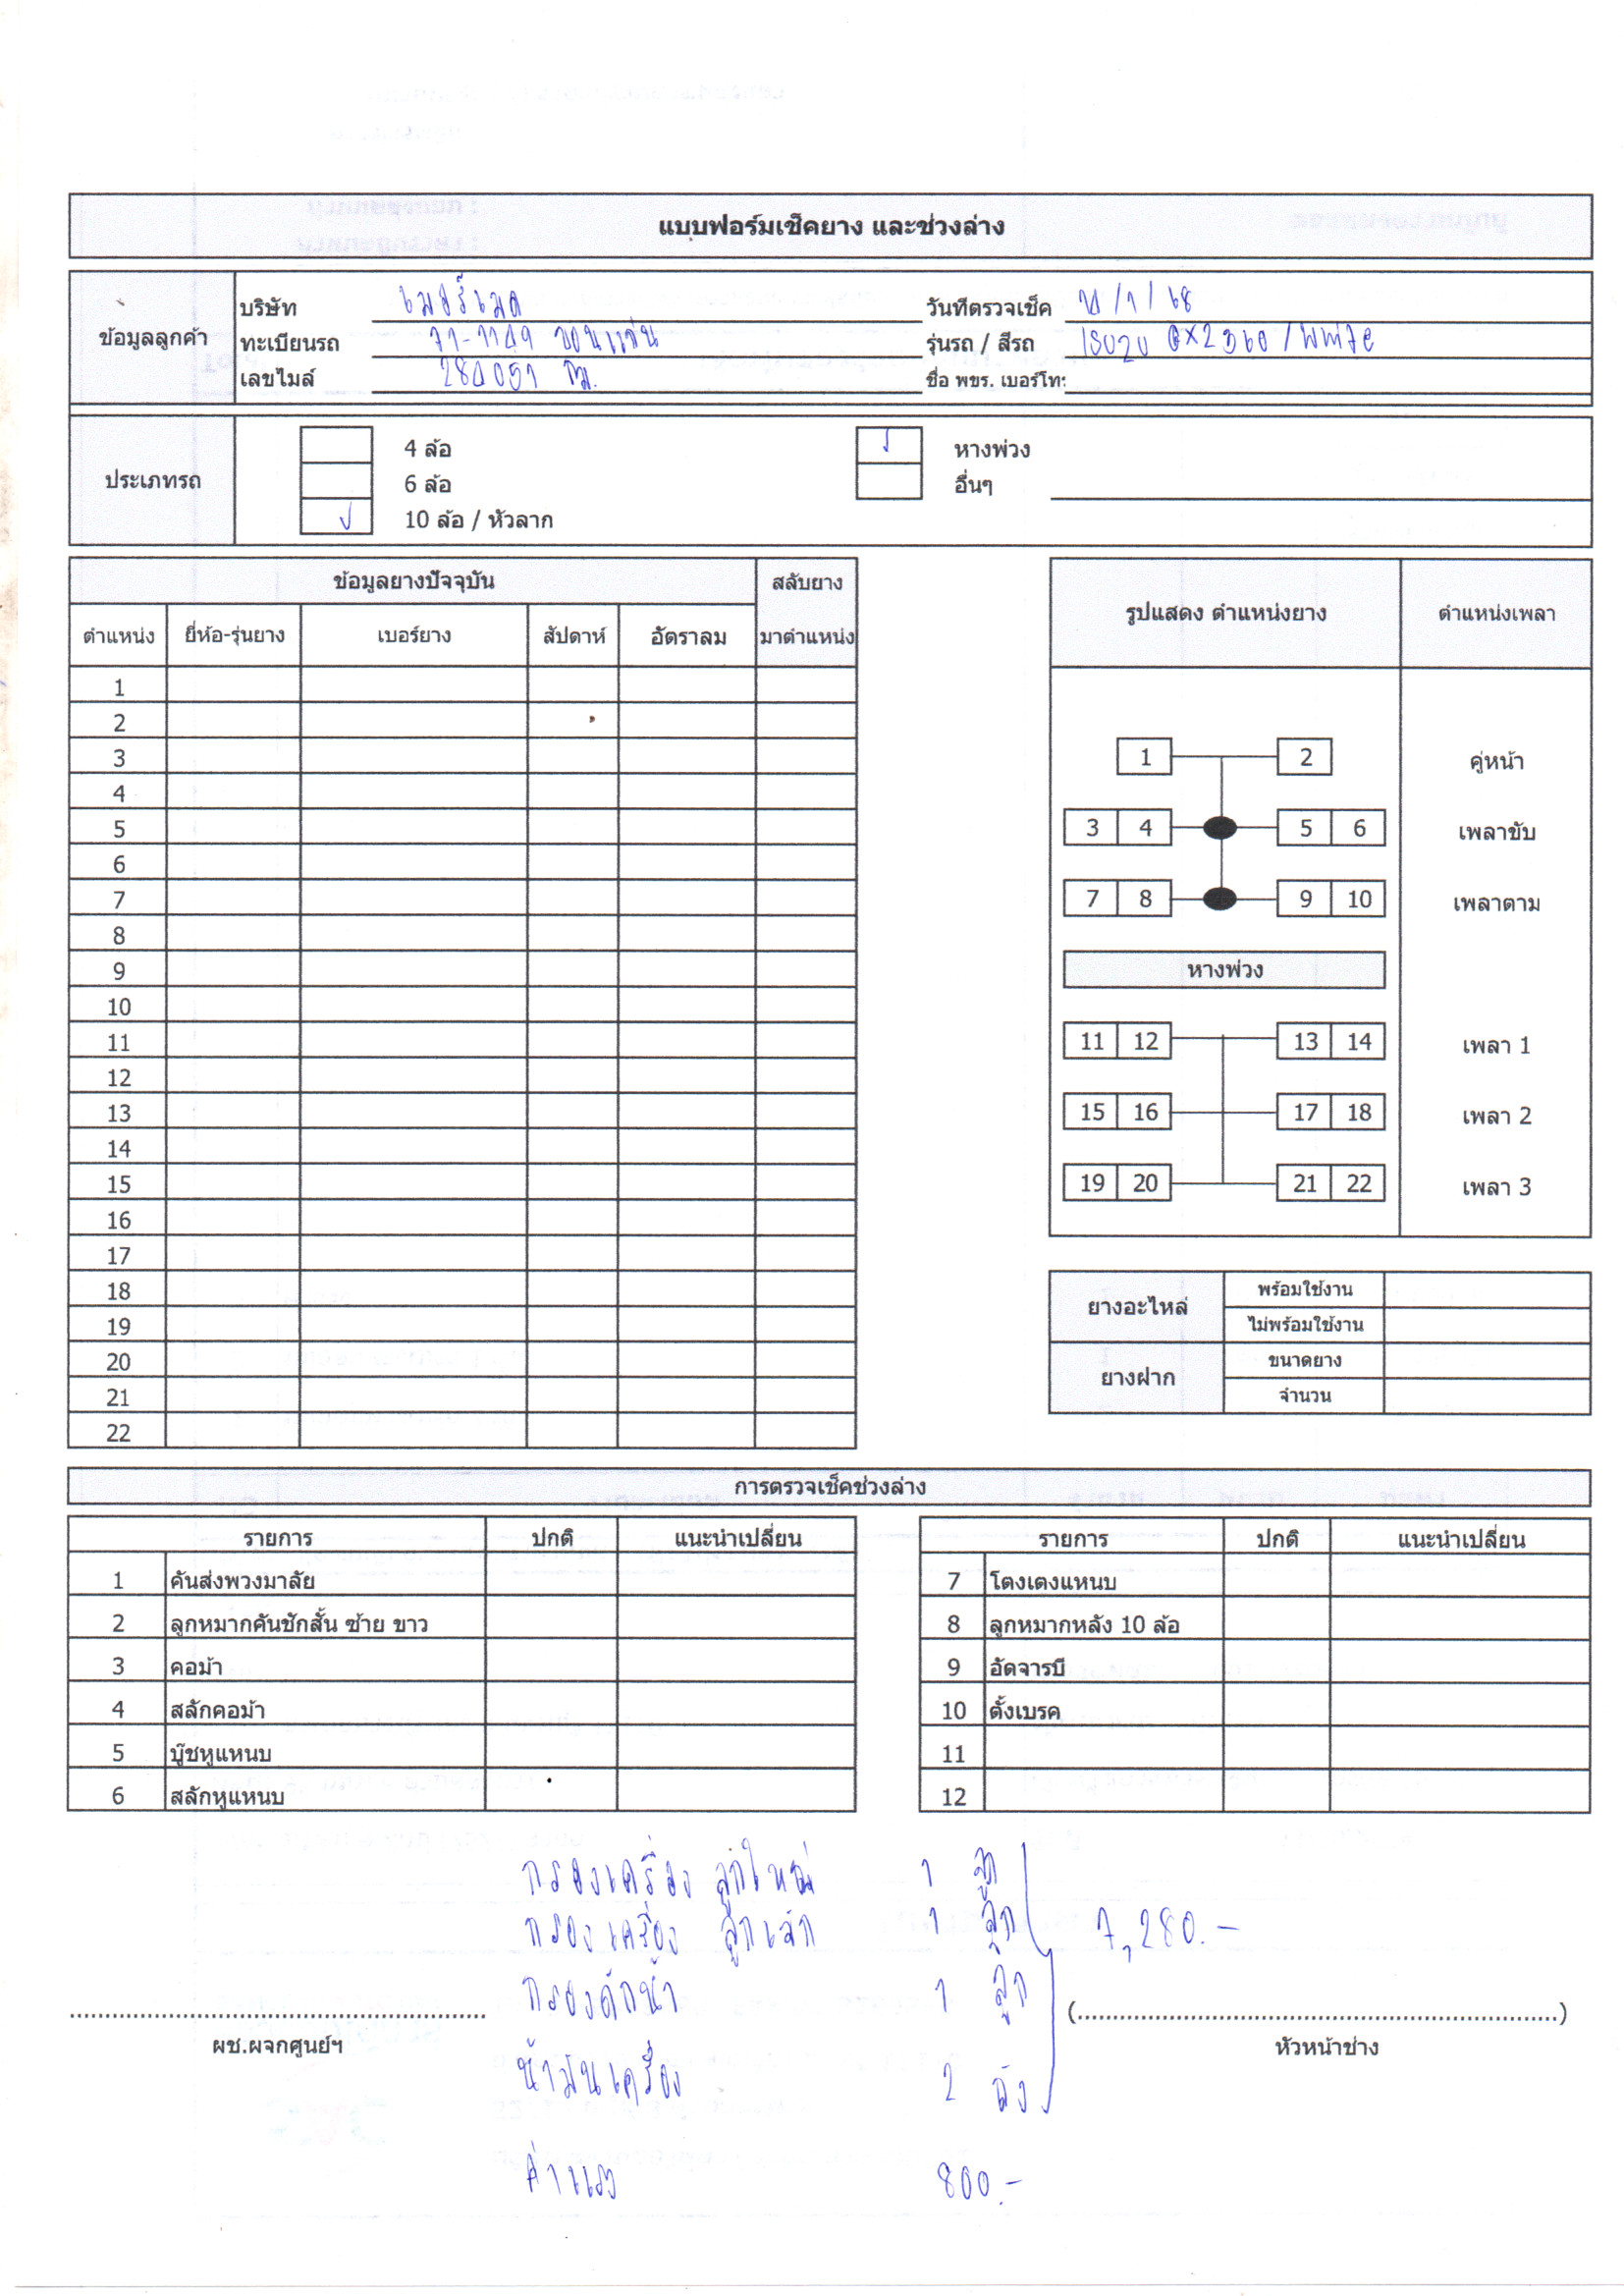 แบบฟอร์มเช็คยาง และช่วงล่าง
ข้อมูลลูกค้า
บริษัท เมอร์เมด วันที่ตรวจเช็ค /1/68
ทะเบียนรถ ขอนแก่น รุ่นรถ / สีรถ ISUZU GXZ360 / White
เลขไมล์ กม. ชื่อ พขร. เบอร์โทร
ประเภทรถ
4 ล้อ หางพ่วง
6 ล้อ อื่นๆ
10 ล้อ / หัวลาก
ข้อมูลยางปัจจุบัน สลับยาง
ตำแหน่ง ยี่ห้อ-รุ่นยาง เบอร์ยาง สัปดาห์ อัตราลม มาตำแหน่ง
1
2
3
4
5
6
7
8
9
10
11
12
13
14
15
16
17
18
19
20
21
22
รูปแสดง ตำแหน่งยาง ตำแหน่งเพลา
1 2 คู่หน้า
3 4 5 6 เพลาขับ
7 8 9 10 เพลาตาม
หางพ่วง
11 12 13 14 เพลา 1
15 16 17 18 เพลา 2
19 20 21 22 เพลา 3
ยางอะไหล่ พร้อมใช้งาน
ไม่พร้อมใช้งาน
ยางฝาก ขนาดยาง
จำนวน
การตรวจเช็คช่วงล่าง
รายการ ปกติ แนะนำเปลี่ยน
1 คันส่งพวงมาลัย
2 ลูกหมากคันชักสั้น ซ้าย ขาว
3 คอม้า
4 สลักคอม้า
5 บู๊ชหูแหนบ
6 สลักหูแหนบ
รายการ ปกติ แนะนำเปลี่ยน
7 โตงเตงแหนบ
8 ลูกหมากหลัง 10 ล้อ
9 อัดจารบี
10 ตั้งเบรค
11
12
กรองเครื่อง ลูกใหญ่ 1 ลูก
กรองเครื่อง ลูกเล็ก 1 ลูก 7,280.-
กรองดักน้ำ 1 ลูก
น้ำมันเครื่อง 2 ถัง
ค่าแรง 800.-
ผช.ผจกศูนย์ฯ
(..........)
หัวหน้าช่าง